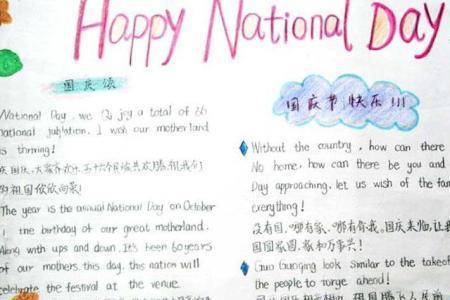 Happy National Day
国庆颂
National Day, we enjoy a total of 66
national jubilation. I wish our motherland
is thriving!
庆国庆,大家齐欢乐,五十六个民族共欢腾,祖我们
的祖国欣欣向荣!
The year is the annual National Day on October
1 the birthday of our great motherland.
Along with ups and down. It's been 60years
of our mothers. this day, this nation will
celebrate the festival at the venue.
国庆节快乐!!!
Without the country, how can there
No home, how can there be you and
Day approaching, let us wish of the fam
everything!
没有国,哪有家,哪有你我。国庆来临,让我
国圆家圆,家和万事兴!
Guo Guoqing look similar to the takeof
the people to surge ahead!